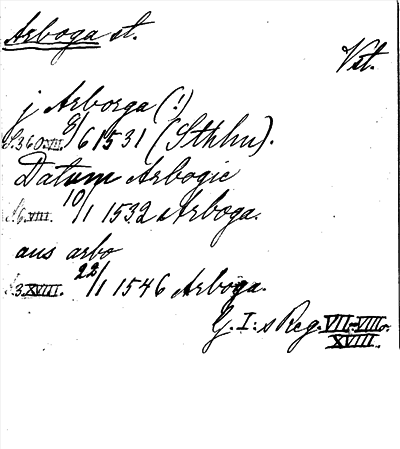 Arboga st.
Vst.
j Arborga (!)
S. 360. VII. 8/6 1531 (Sthlm).
Datum Arbogie
S. 6. VIII. 10/1 1532 Arboga.
aus arbo
S. 3. XVIII. 22/1 1546 Arboga.
G. I:s Reg. VII-VIII o.
XVIII.